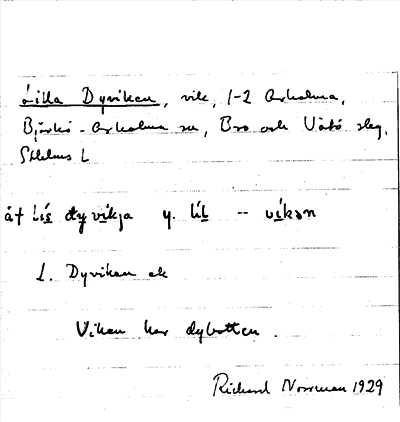 Lilla Dyviken, vik, 1-2 Arholma,
Björkö-Arholma sn, Bro och Vätö slg,
Sthlms L
åt lis dyvikja y. lil -- vikən
L. Dyviken ek
Viken har dybotten.
Richard Norrman 1929